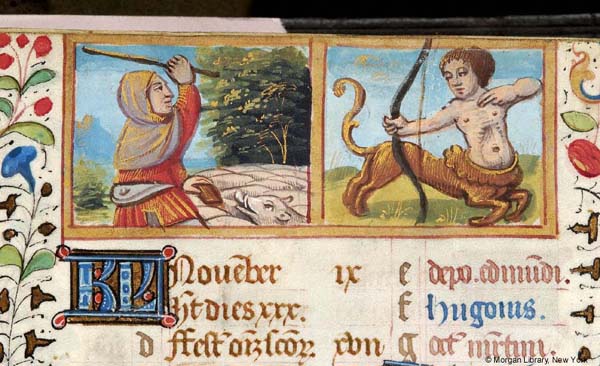 KL Nouēber ix e depo. edmūdi.
Hꝫt dies xxx. f Hugonis.
d ffest oīm scōꝝ xvii g oct m̄rtini.
© Morgan Library, New York